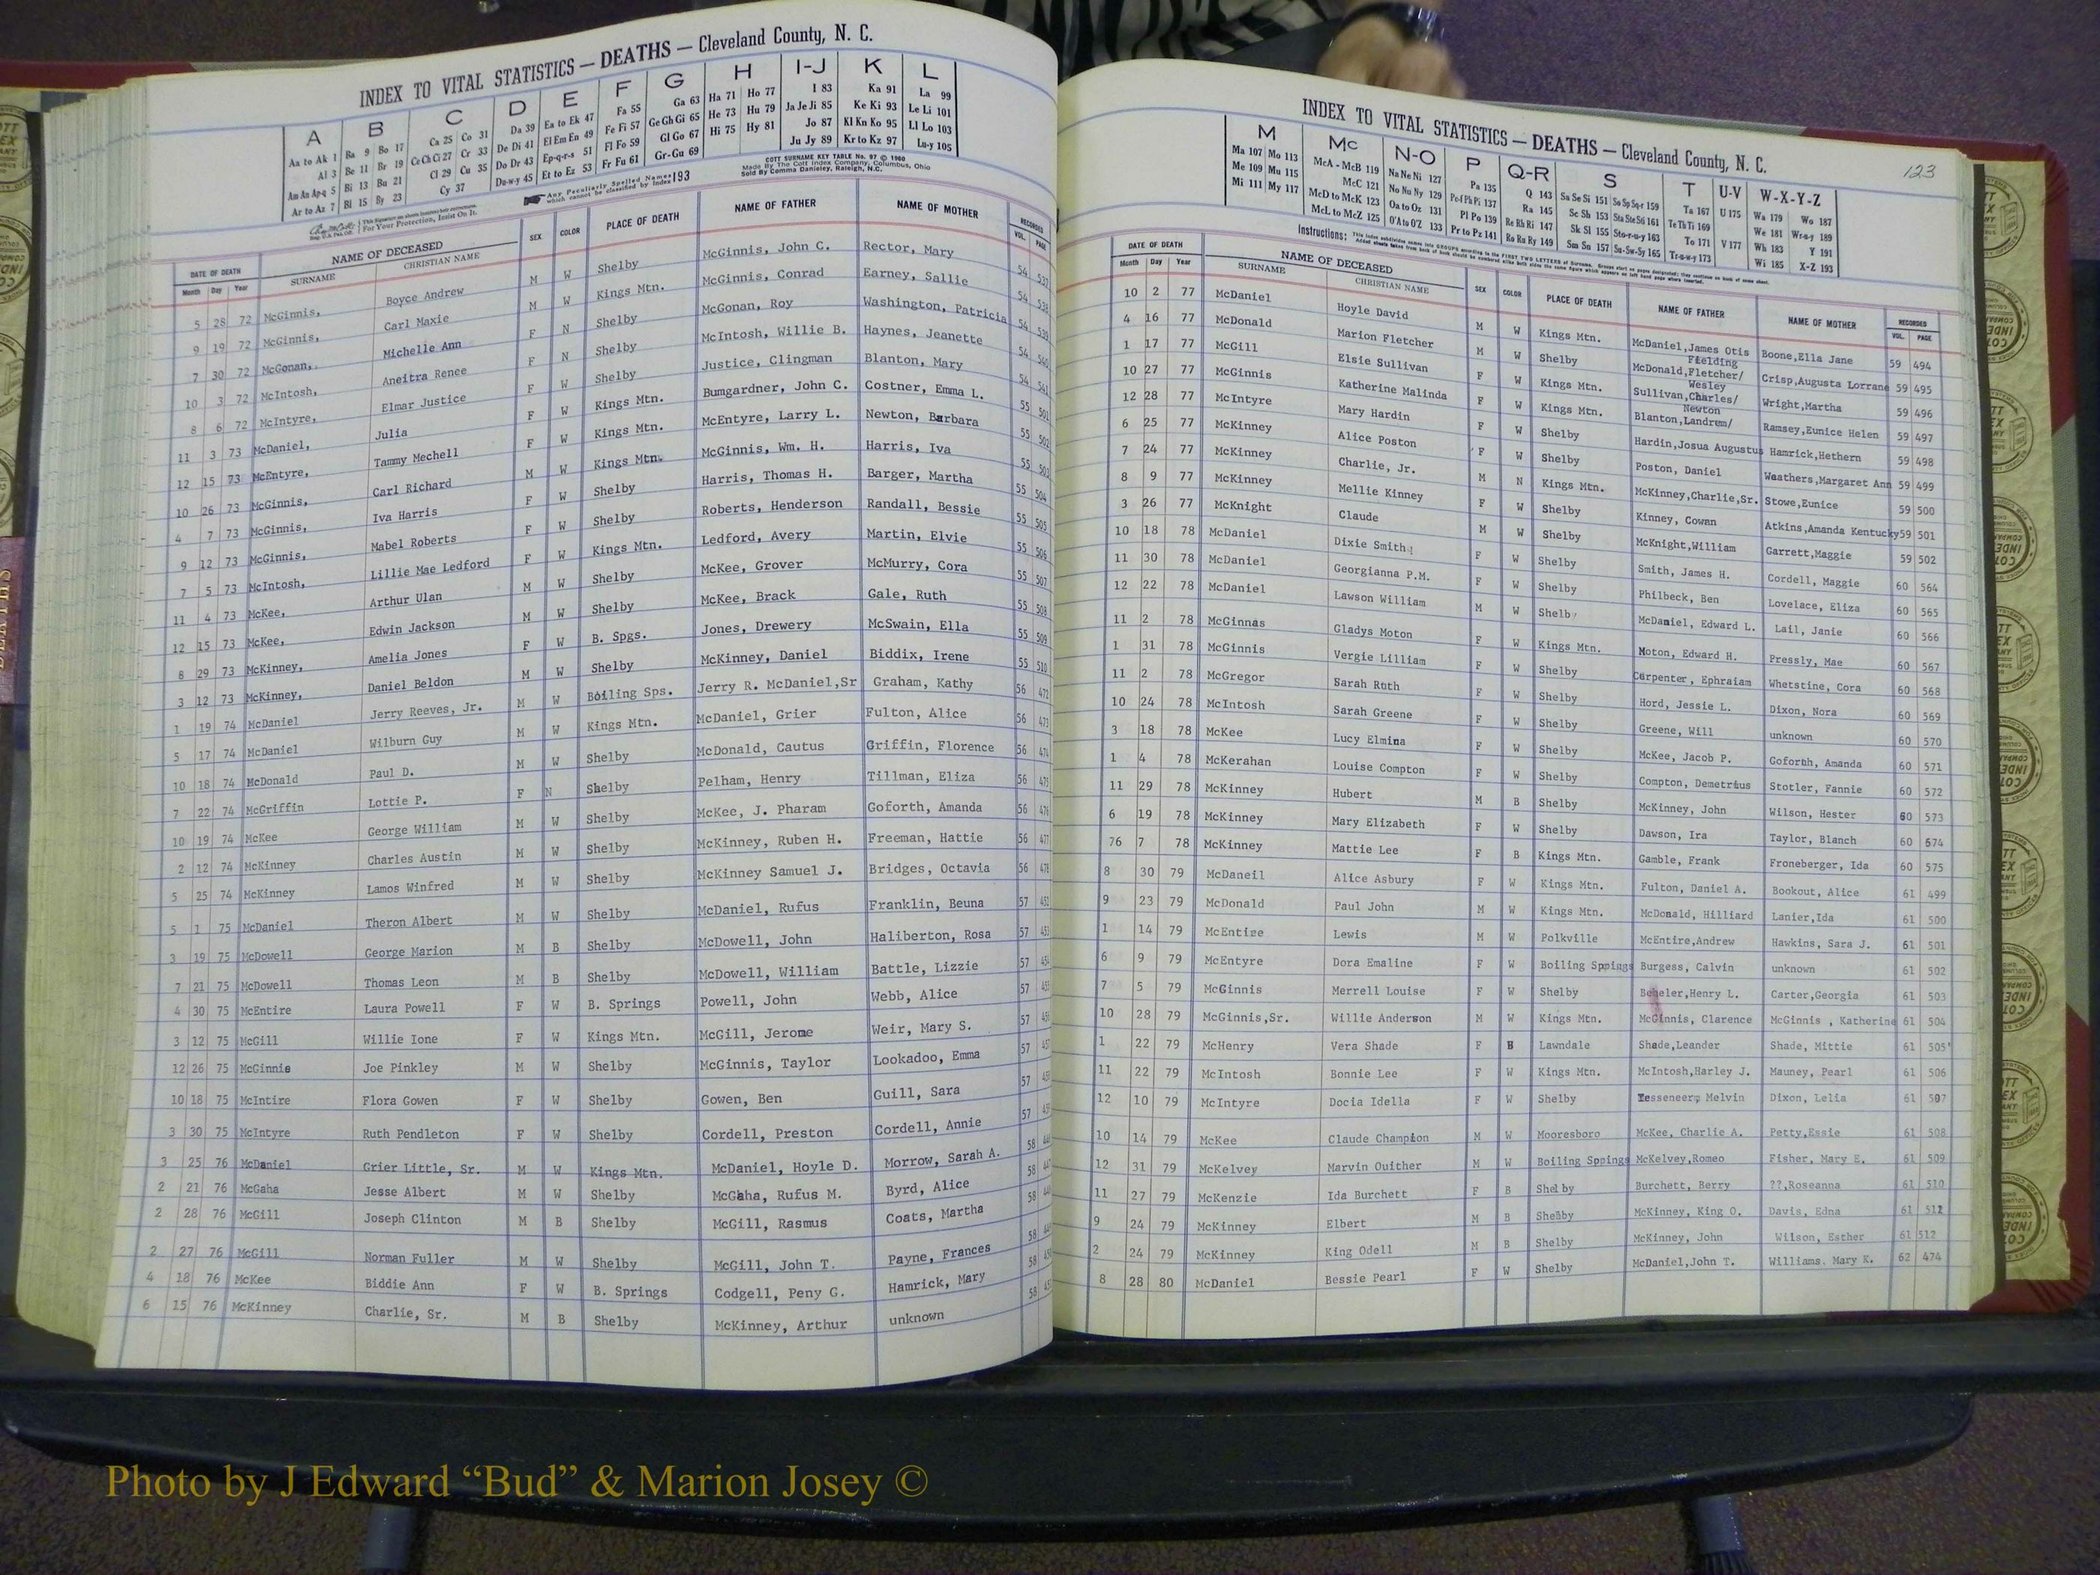 INDEX TO VITAL STATISTICS — DEATHS — Cleveland County, N. C.
A B C D E F G H I-J K L
Aa to Ak 1 Ba 9 Bo 17 Ca 25 Co 31 Da 39 Ea to Ek 47 Fa 55 Ga 63 Ha 71 Ho 77 I 83 Ka 91 La 99
Al 3 Be 11 Br 19 Ce Ch Ci 27 Cr 33 De Di 41 El Em En 49 Fe Fi 57 Ge Gh Gi 65 He 73 Hu 79 Ja Je Ji 85 Ke Ki 93 Le Li 101
Am An Ap-q 5 Bi 13 Bu 21 Cl 29 Cu 35 Do Dr 43 Ep-q-r-s 51 Fl Fo 59 Gl Go 67 Hi 75 Hy 81 Jo 87 Kl Kn Ko 95 Ll Lo 103
Ar to Az 7 Bl 15 By 23 Cy 37 Du-w-y 45 Et to Ez 53 Fr Fu 61 Gr-Gu 69 Ju Jy 89 Kr to Kz 97 Lu-y 105
COTT SURNAME KEY TABLE No. 97 © 1980
Made By The Cott Index Company, Columbus, Ohio
Sold By Comma Danieley, Raleigh, N.C.
Any Peculiarly Spelled Names which cannot be classified by Index 193
For Your Protection, Insist On It.
DATE OF DEATH NAME OF DECEASED SEX COLOR PLACE OF DEATH NAME OF FATHER NAME OF MOTHER RECORDED
Month Day Year SURNAME CHRISTIAN NAME VOL. PAGE
5 28 72 McGinnis, Boyce Andrew M W Shelby McGinnis, John C. Rector, Mary 54 537
9 19 72 McGinnis, Carl Maxie M W Kings Mtn. McGinnis, Conrad Earney, Sallie 54 538
7 30 72 McGonan, Michelle Ann F N Shelby McGonan, Roy Washington, Patricia 54 539
10 3 72 McIntosh, Aneitra Renee F N Shelby McIntosh, Willie B. Haynes, Jeanette 54 540
8 6 72 McIntyre, Elmar Justice F W Shelby Justice, Clingman Blanton, Mary 54 541
11 3 73 McDaniel, Julia F W Kings Mtn. Bumgardner, John C. Costner, Emma L. 55 501
12 15 73 McEntyre, Tammy Mechell F W Kings Mtn. McEntyre, Larry L. Newton, Barbara 55 502
10 26 73 McGinnis, Carl Richard M W Kings Mtn. McGinnis, Wm. H. Harris, Iva 55 503
4 7 73 McGinnis, Iva Harris F W Shelby Harris, Thomas H. Barger, Martha 55 504
9 12 73 McGinnis, Mabel Roberts F W Shelby Roberts, Henderson Randall, Bessie 55 505
7 5 73 McIntosh, Lillie Mae Ledford F W Kings Mtn. Ledford, Avery Martin, Elvie 55 506
11 4 73 McKee, Arthur Ulan M W Shelby McKee, Grover McMurry, Cora 55 507
12 15 73 McKee, Edwin Jackson M W Shelby McKee, Brack Gale, Ruth 55 508
8 29 73 McKinney, Amelia Jones F W B. Spgs. Jones, Drewery McSwain, Ella 55 509
3 12 73 McKinney, Daniel Beldon M W Shelby McKinney, Daniel Biddix, Irene 55 510
1 19 74 McDaniel Jerry Reeves, Jr. M W Boiling Sps. Jerry R. McDaniel,Sr Graham, Kathy 56 472
5 17 74 McDaniel Wilburn Guy M W Kings Mtn. McDaniel, Grier Fulton, Alice 56 473
10 18 74 McDonald Paul D. M W Shelby McDonald, Cautus Griffin, Florence 56 474
7 22 74 McGriffin Lottie P. F N Shelby Pelham, Henry Tillman, Eliza 56 475
10 19 74 McKee George William M W Shelby McKee, J. Pharam Goforth, Amanda 56 476
2 12 74 McKinney Charles Austin M W Shelby McKinney, Ruben H. Freeman, Hattie 56 477
5 25 74 McKinney Lamos Winfred M W Shelby McKinney Samuel J. Bridges, Octavia 56 478
5 1 75 McDaniel Theron Albert M W Shelby McDaniel, Rufus Franklin, Beuna 57 452
3 19 75 McDowell George Marion M B Shelby McDowell, John Haliberton, Rosa 57 453
7 21 75 McDowell Thomas Leon M B Shelby McDowell, William Battle, Lizzie 57 454
4 30 75 McEntire Laura Powell F W B. Springs Powell, John Webb, Alice 57 455
3 12 75 McGill Willie Ione F W Kings Mtn. McGill, Jerome Weir, Mary S. 57 456
12 26 75 McGinnis Joe Pinkley M W Shelby McGinnis, Taylor Lookadoo, Emma 57 457
10 18 75 McIntire Flora Gowen F W Shelby Gowen, Ben Guill, Sara 57
3 30 75 McIntyre Ruth Pendleton F W Shelby Cordell, Preston Cordell, Annie 57
3 25 76 McDaniel Grier Little, Sr. M W Kings Mtn. McDaniel, Hoyle D. Morrow, Sarah A. 58
2 21 76 McGaha Jesse Albert M W Shelby McGaha, Rufus M. Byrd, Alice 58
2 28 76 McGill Joseph Clinton M B Shelby McGill, Rasmus Coats, Martha 58
2 27 76 McGill Norman Fuller M W Shelby McGill, John T. Payne, Frances 58
4 18 76 McKee Biddie Ann F W B. Springs Codgell, Peny G. Hamrick, Mary 58
6 15 76 McKinney Charlie, Sr. M B Shelby McKinney, Arthur unknown 58
INDEX TO VITAL STATISTICS — DEATHS — Cleveland County, N. C.
123
M Mc N-O P Q-R S T U-V W-X-Y-Z
Ma 107 Mo 113 McA - McB 119 Na Ne Ni 127 Pa 135 Q 143 Sa Se Si 151 So Sp Sq-r 159 Ta 167 U 175 Wa 179 Wo 187
Me 109 Mu 115 McC 121 No Nu Ny 129 Pe-f Ph Pi 137 Ra 145 Sc Sh 153 Sta Ste Sti 161 Te Th Ti 169 V 177 We 181 Wr-u-y 189
Mi 111 My 117 McD to McK 123 Oa to Oz 131 Pl Po 139 Re Rh Ri 147 Sk Sl 155 Sto-r-u-y 163 To 171 Wh 183 Y 191
McL to McZ 125 O'A to O'Z 133 Pr to Pz 141 Ro Ru Ry 149 Sm Sn 157 Su-Sw-Sy 165 Tr-u-w-y 173 Wi 185 X-Z 193
Instructions: This index subdivides names into GROUPS according to the FIRST TWO LETTERS of Surname.
DATE OF DEATH NAME OF DECEASED SEX COLOR PLACE OF DEATH NAME OF FATHER NAME OF MOTHER RECORDED
Month Day Year SURNAME CHRISTIAN NAME VOL. PAGE
10 2 77 McDaniel Hoyle David M W Kings Mtn. McDaniel,James Otis Boone,Ella Jane 59 494
4 16 77 McDonald Marion Fletcher M W Shelby McDonald,Fletcher/ Fielding Crisp,Augusta Lorrane 59 495
1 17 77 McGill Elsie Sullivan F W Kings Mtn. Sullivan,Charles/ Wesley Wright,Martha 59 496
10 27 77 McGinnis Katherine Malinda F W Kings Mtn. Blanton,Landrem/ Newton Ramsey,Eunice Helen 59 497
12 28 77 McIntyre Mary Hardin F W Shelby Hardin,Josua Augustus Hamrick,Hethern 59 498
6 25 77 McKinney Alice Poston F W Shelby Poston, Daniel Weathers,Margaret Ann 59 499
7 24 77 McKinney Charlie, Jr. M N Kings Mtn. McKinney,Charlie,Sr. Stowe,Eunice 59 500
8 9 77 McKinney Mellie Kinney F W Shelby Kinney, Cowan Atkins,Amanda Kentucky 59 501
3 26 77 McKnight Claude M W Shelby McKnight,William Garrett,Maggie 59 502
10 18 78 McDaniel Dixie Smith F W Shelby Smith, James H. Cordell, Maggie 60 564
11 30 78 McDaniel Georgianna P.M. F W Shelby Philbeck, Ben Lovelace, Eliza 60 565
12 22 78 McDaniel Lawson William M W Shelby McDaniel, Edward L. Lail, Janie 60 566
11 2 78 McGinnas Gladys Moton F W Kings Mtn. Moton, Edward H. Pressly, Mae 60 567
1 31 78 McGinnis Vergie Lilliam F W Shelby Carpenter, Ephraiam Whetstine, Cora 60 568
11 2 78 McGregor Sarah Ruth F W Shelby Hord, Jessie L. Dixon, Nora 60 569
10 24 78 McIntosh Sarah Greene F W Shelby Greene, Will unknown 60 570
3 18 78 McKee Lucy Elmina F W Shelby McKee, Jacob P. Goforth, Amanda 60 571
1 4 78 McKerahan Louise Compton F W Shelby Compton, Demetrius Stotler, Fannie 60 572
11 29 78 McKinney Hubert M B Shelby McKinney, John Wilson, Hester 60 573
6 19 78 McKinney Mary Elizabeth F W Shelby Dawson, Ira Taylor, Blanch 60 574
76 7 78 McKinney Mattie Lee F B Kings Mtn. Gamble, Frank Froneberger, Ida 60 575
8 30 79 McDaneil Alice Asbury F W Kings Mtn. Fulton, Daniel A. Bookout, Alice 61 499
9 23 79 McDonald Paul John M W Kings Mtn. McDonald, Hilliard Lanier,Ida 61 500
1 14 79 McEntire Lewis M W Polkville McEntire,Andrew Hawkins, Sara J. 61 501
6 9 79 McEntyre Dora Emaline F W Boiling Springs Burgess, Calvin unknown 61 502
7 5 79 McGinnis Merrell Louise F W Shelby Beheler,Henry L. Carter,Georgia 61 503
10 28 79 McGinnis,Sr. Willie Anderson M W Kings Mtn. McGinnis, Clarence McGinnis , Katherine 61 504
1 22 79 McHenry Vera Shade F B Lawndale Shade,Leander Shade, Mittie 61 505
11 22 79 McIntosh Bonnie Lee F W Kings Mtn. McIntosh,Harley J. Mauney, Pearl 61 506
12 10 79 McIntyre Docia Idella F W Shelby Tesseneer, Melvin Dixon, Lelia 61 507
10 14 79 McKee Claude Champion M W Mooresboro McKee, Charlie A. Petty,Essie 61 508
12 31 79 McKelvey Marvin Ouither M W Boiling Springs McKelvey,Romeo Fisher, Mary E. 61 509
11 27 79 McKenzie Ida Burchett F B Shelby Burchett, Berry ??,Roseanna 61 510
9 24 79 McKinney Elbert M B Shelby McKinney, King O. Davis, Edna 61 511
2 24 79 McKinney King Odell M B Shelby McKinney, John Wilson, Esther 61 512
8 28 80 McDaniel Bessie Pearl F W Shelby McDaniel,John T. Williams. Mary K. 62 474
Photo by J Edward “Bud” & Marion Josey ©